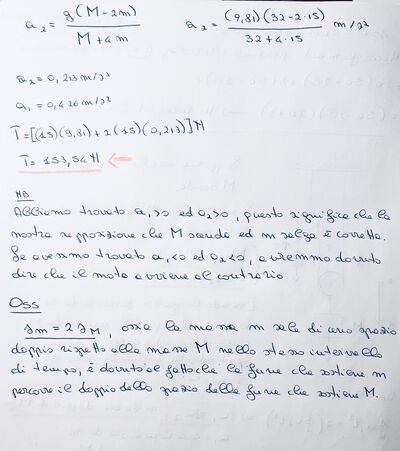 a₂ = g(M-2m) / M+4m    a₂ = (9,81)(32-2·15) / 32+4·15 m/s²
a₂ = 0,213 m/s²
a₁ = 0,426 m/s²
T=[(15)(9,81)+2(15)(0,213)]N
T= 153,54 N ←
NB
Abbiamo trovato a₁>0 ed a₂>0, questo significa che la
nostra supposizione che M scende ed m salga è corretta.
Se avessimo trovato a₁<0 ed a₂<0, avremmo dovuto
dire che il moto avviene al contrario.
Oss
sm = 2 sM, ossia la massa m sale di uno spazio
doppio rispetto alla massa M nello stesso intervallo
di tempo, è dovuto al fatto che la fune che sostiene m
percorre il doppio dello spazio della fune che sostiene M.